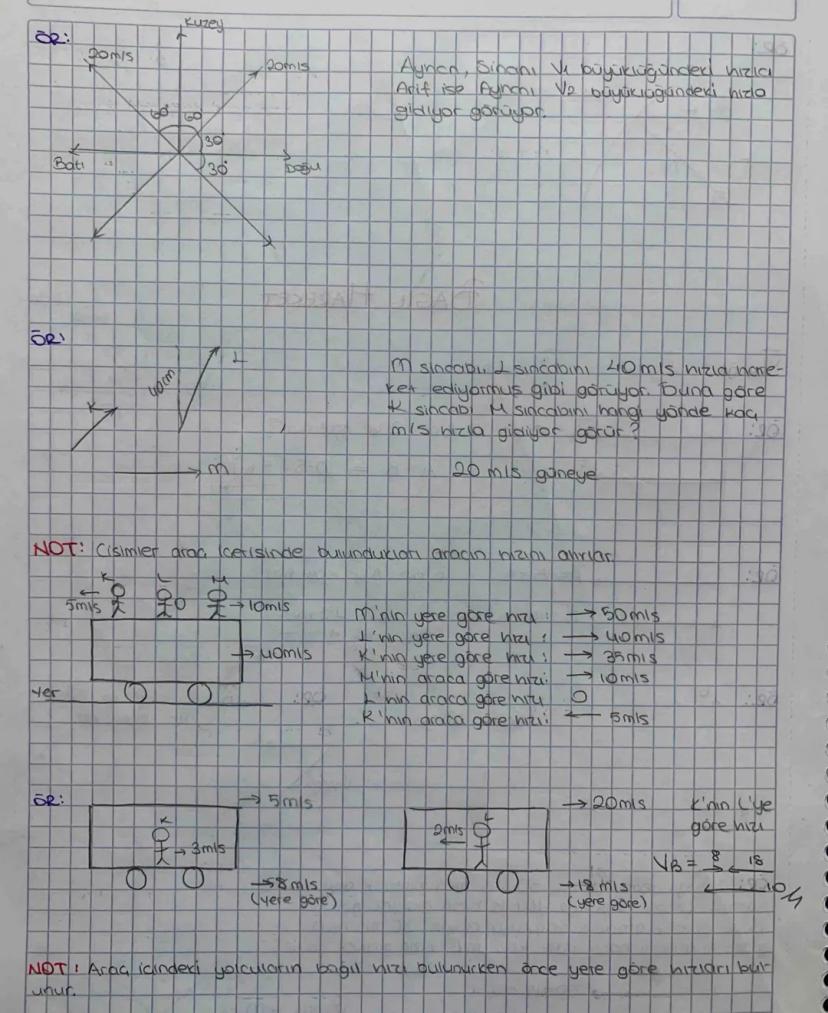 ÖR:
Kuzey
20m/s
20m/s
60 60
30°
30°
Batı
Doğu
Ayhan, Sinanı V1 büyüklüğündeki hızla
Arif ise Ayhanı V2 büyüklüğündeki hızla
gidiyor görüyor.
ÖR:
L
40m
K
M
M sincabı, L sincabını 40m/s hızla hare-
ket ediyormuş gibi görüyor. Buna göre
K sincabı M sincabını hangi yönde kaç
m/s hızla gidiyor görür?
20 m/s güneye
NOT: Cisimler araç içerisinde bulundukları aracın hızını alırlar.
K L M
5m/s
10m/s
40m/s
yer
M'nin yere göre hızı: → 50m/s
L'nin yere göre hızı: → 40m/s
K'nın yere göre hızı: → 35m/s
M'nin araca göre hızı: → 10m/s
L'nin araca göre hızı 0
K'nın araca göre hızı: ← 5m/s
ÖR:
→ 5m/s
K
→ 3m/s
→ 8m/s
(yere göre)
→ 20m/s
L
2m/s
→ 18m/s
(yere göre)
K'nın L'ye
göre hızı
VB = 8 18
10
NOT: Araç içindeki yolcuların bağıl hızı bulunurken önce yere göre hızları bul-
unur.